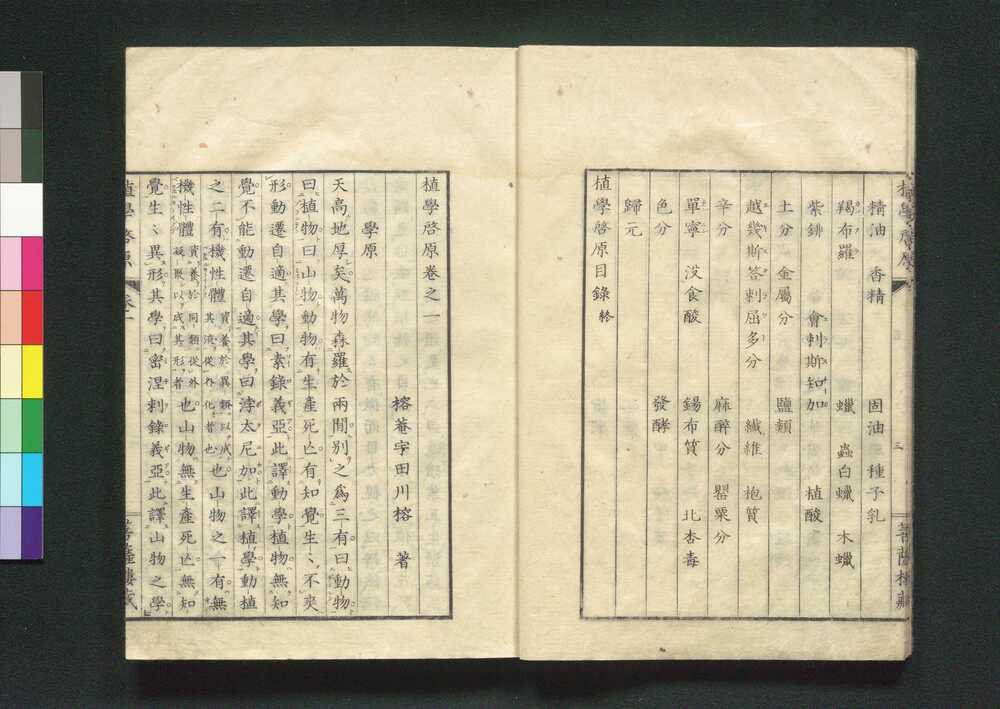 精油 香精 固油 種子乳
羯布羅 蠟 蟲白蠟 木蠟
紫鉚 會刺斯知加 植酸
土分 金屬分 鹽類
越幾斯答刺屈多分 纎維 抱質
辛分 麻醉分 罌粟分
單寧 沒食酸 鍚布質 北杏毒
色分 發酵
歸元
植學啓原目錄 終
三
菩薩樓藏
植學啓原卷之一
榕菴宇田川榕 著
學原
天高地厚矣萬物森羅於兩間別之爲三有曰動物
曰植物曰山物動物有生產死亡有知覺生〻不爽
形動遷自適其學曰索錄義亞此譯動學植物無知
覺不能動遷自適其學曰浡太尼加此譯植學動植
之二有機性體資養於異類以成其液從外化者也也山物之一有無
機性體資養於同類從外凝聚以成其形者也山物無生產死亡無知
覺生〻異形其學曰密涅刺錄義亞此譯山物之學
植學啓原 卷一
菩薩樓藏